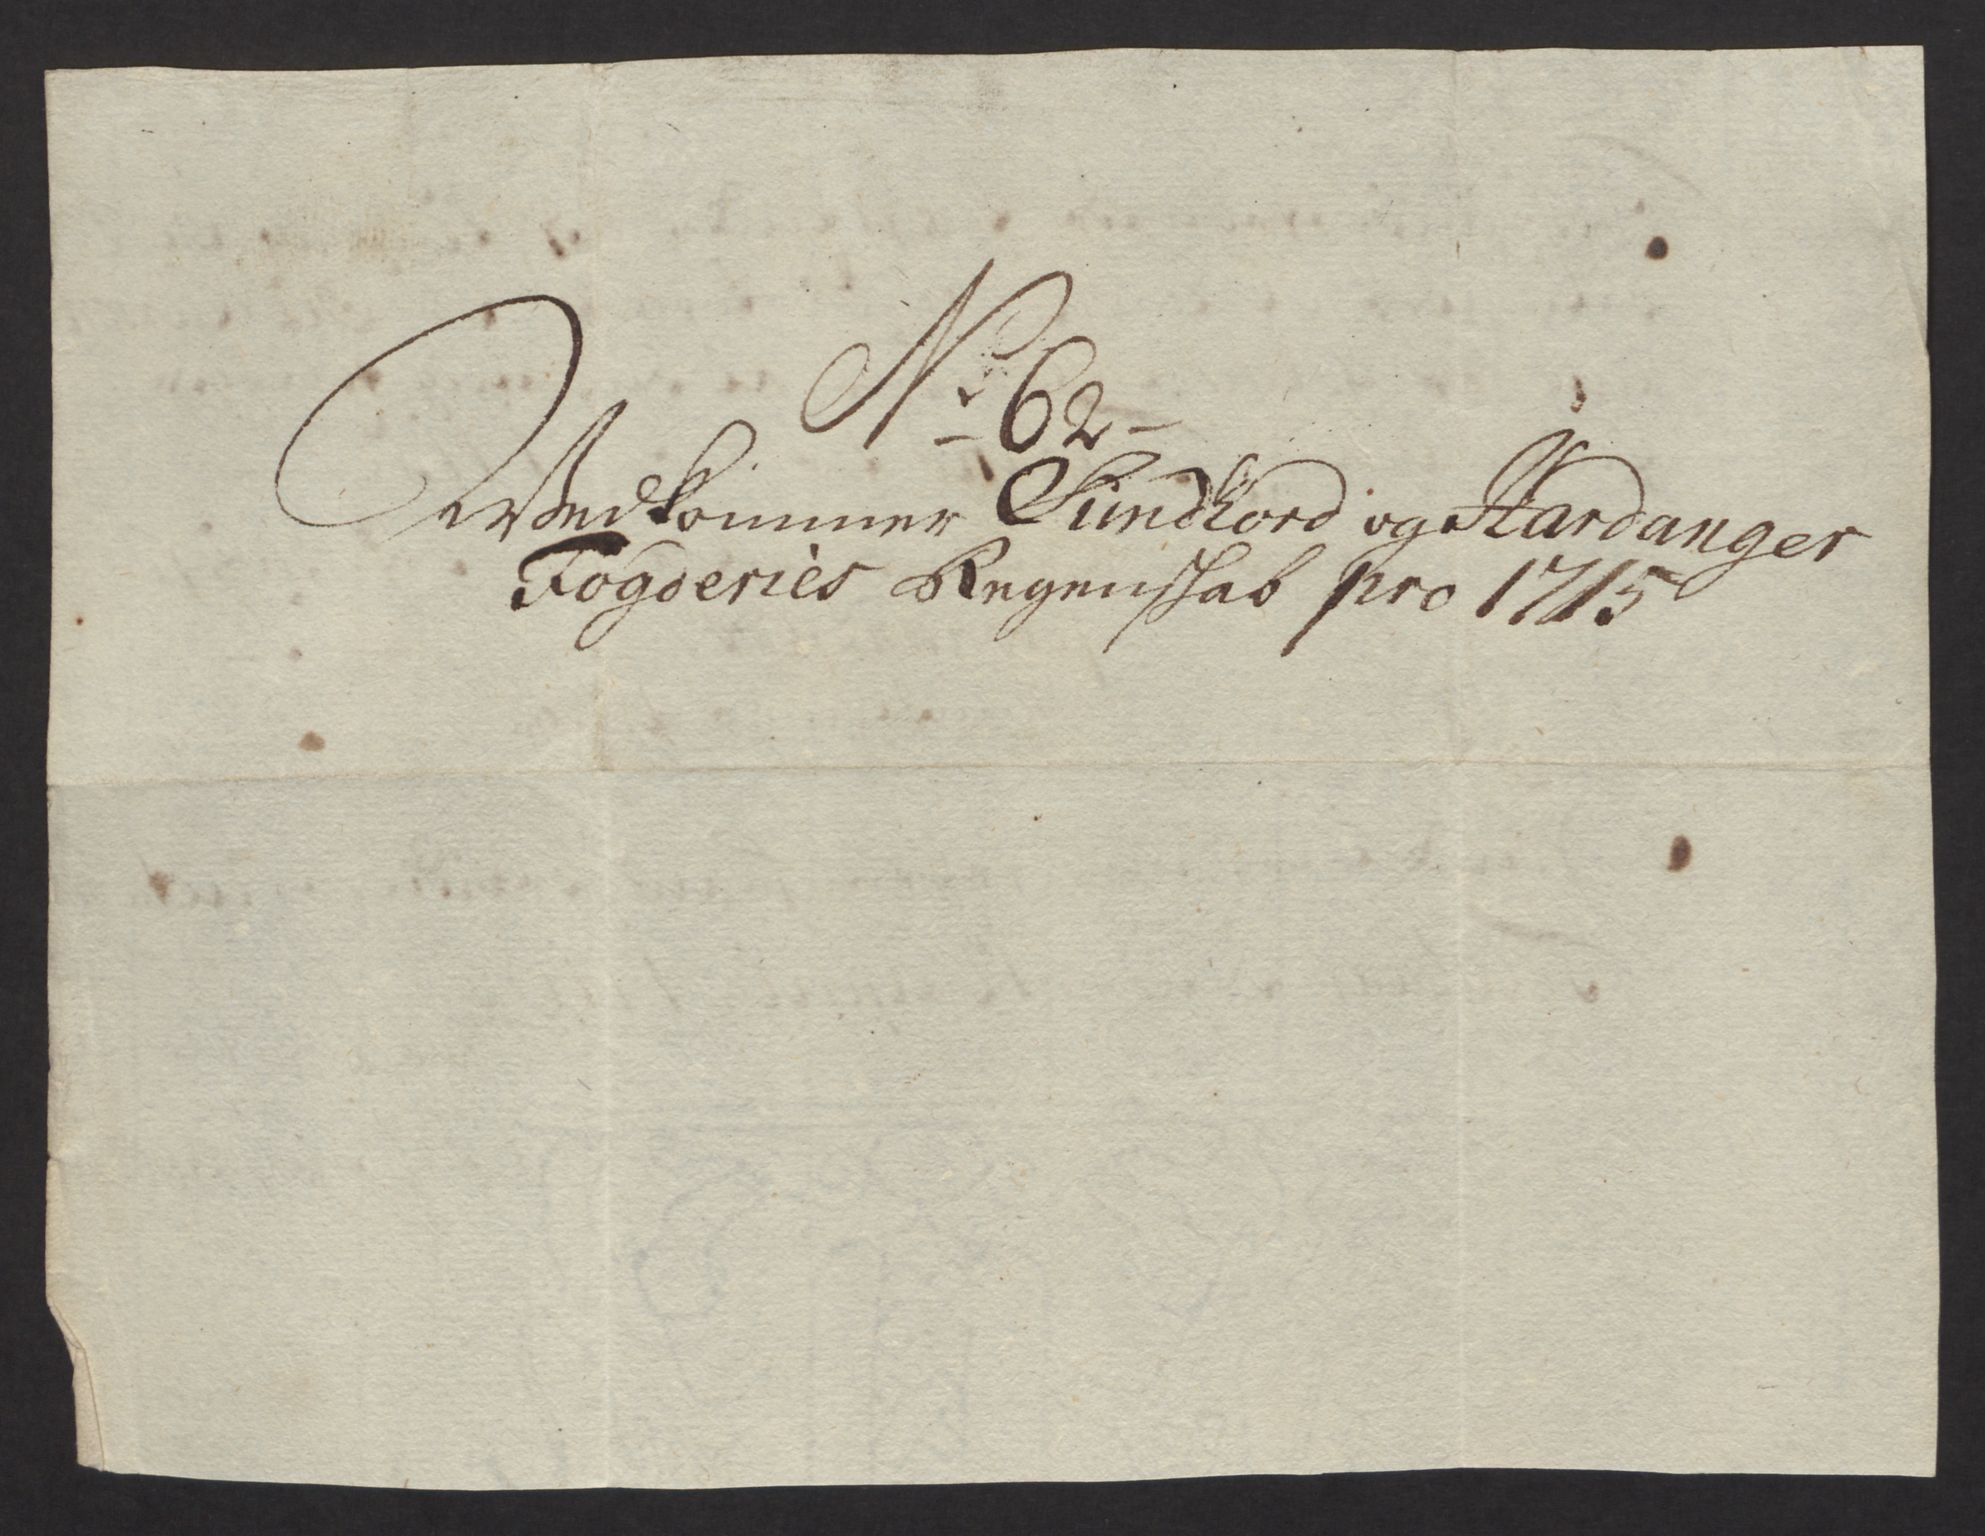 No 62
Wedkommer Sundhord og Hardanger
Fogderies Regenskab pro 1715